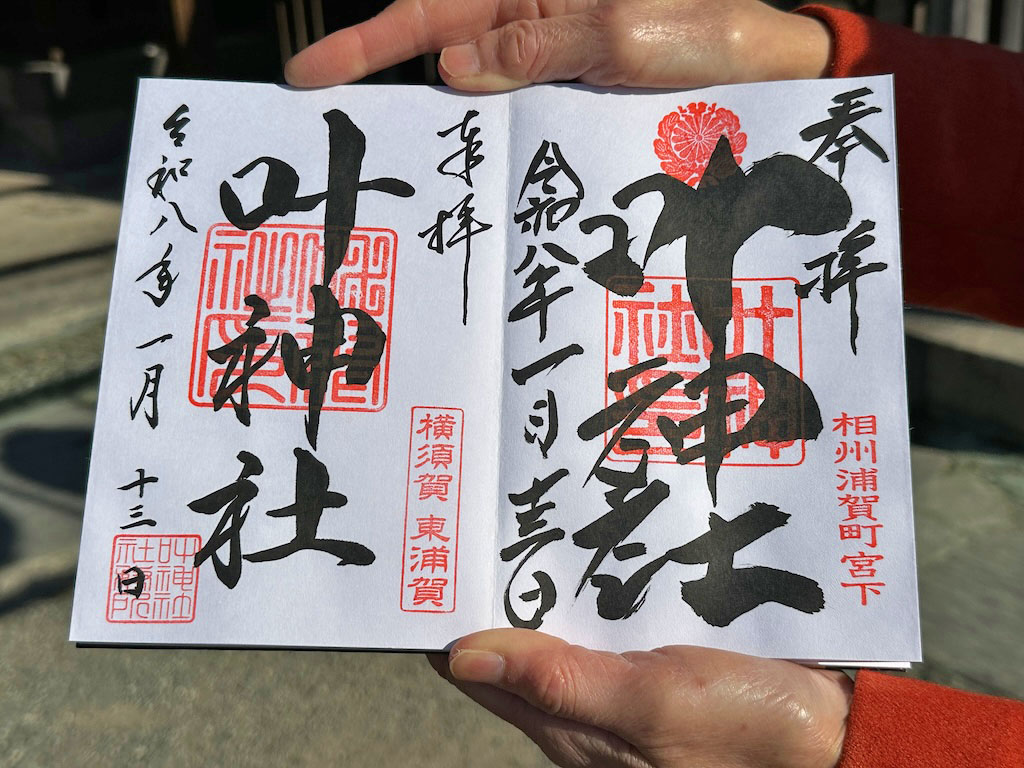 奉拝
相州浦賀町宮下
叶神社
令和八年一月十三日
奉拝
横須賀 東浦賀
叶神社
令和八年一月十三日
叶神社